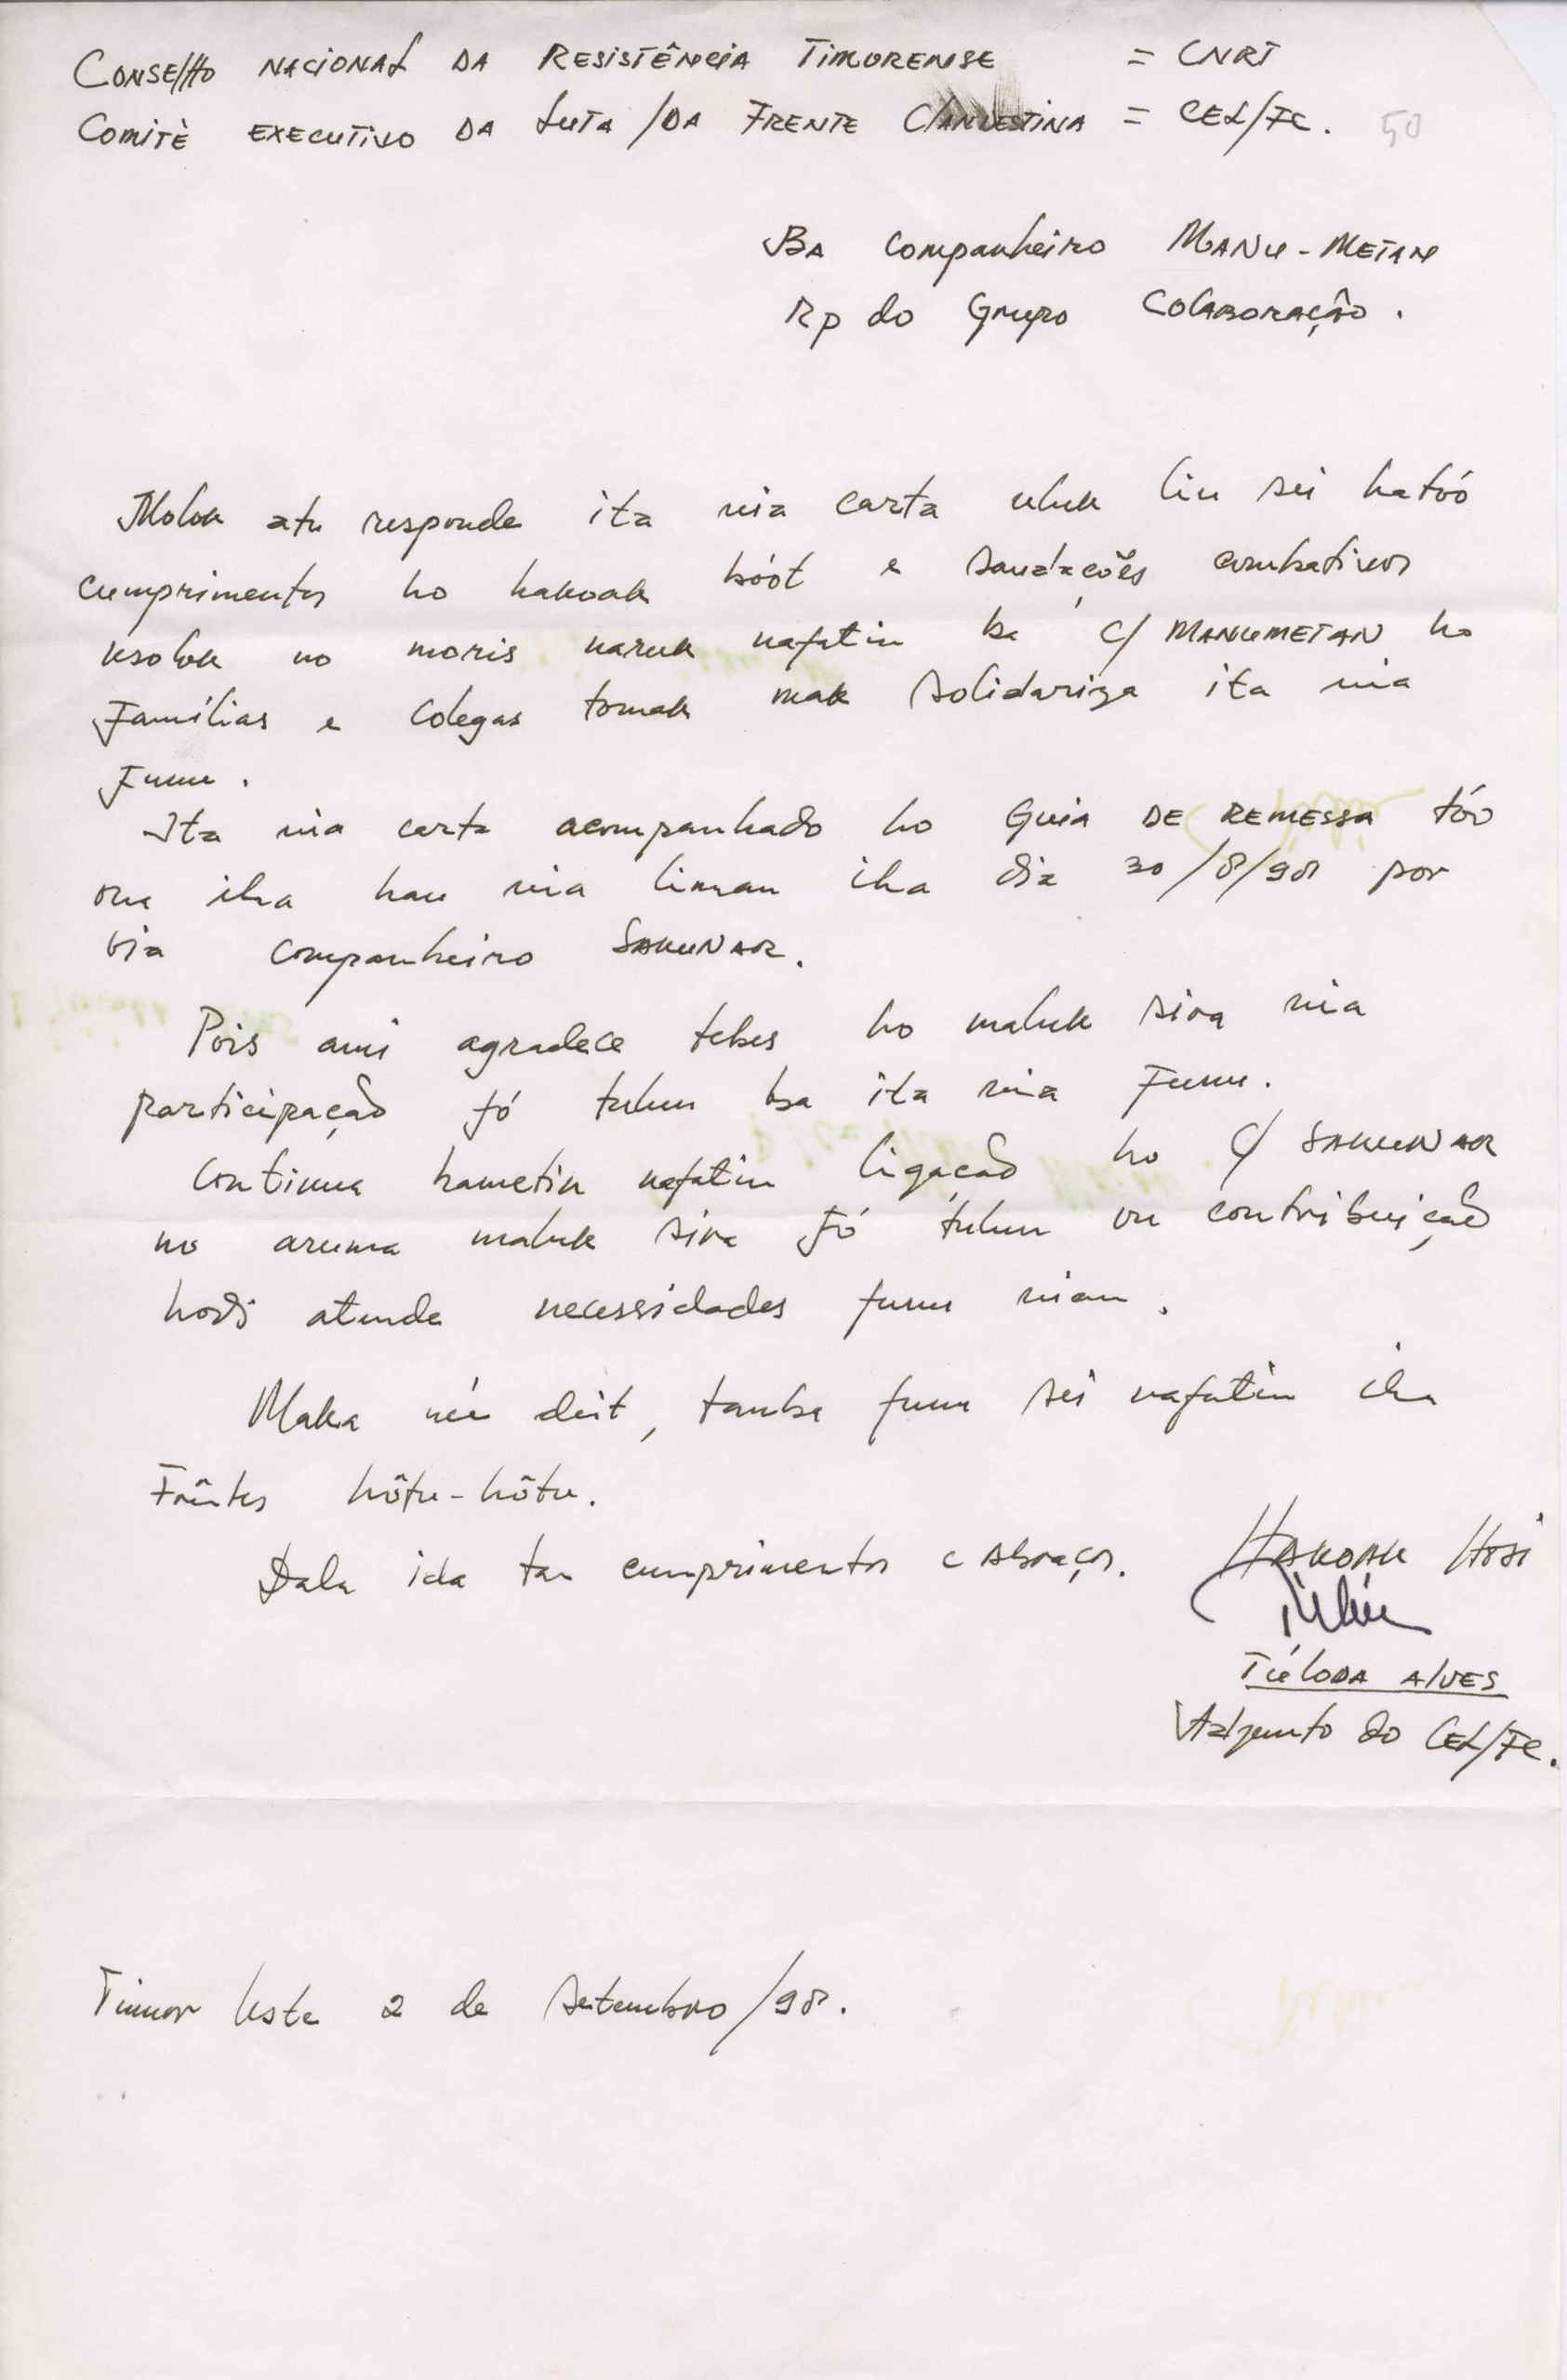 CONSELHO NACIONAL DA RESISTÊNCIA TIMORENSE = CNRT
COMITÈ EXECUTIVO DA LUTA /DA FRENTE CLANDESTINA = CEL/FC. 50
BA Companheiro MANU-METAN
Rp do Grupo COLABORAÇÃO.
Molok atu responde ita nia carta uluk liu sei hatóó
cumprimentos ho hakoak bóót e saudações combativas
ksolok no moris naruk nafatin ba C/ MANUMETAN ho
Famílias e Colegas tomak mak solidariza ita nia
Funu.
Ita nia carta acompanhado ho Guia DE REMESSA tóo
ona iha hau nia liman iha dia 30/8/98 por
via Companheiro SAKUNAR.
Pois ami agradece tebes ho maluk sira nia
participação fó tulun ba ita nia Funu.
Continua hametin nafatin ligação ho C/ SAKUNAR
no aruma maluk sira fó tulun ou contribuição
hodi atende necessidades funu nian.
Maka né'e deit, tamba funu sei nafatin iha
Frêntes hôtu-hôtu.
Dala ida tan cumprimentos e Abraços. HAKOAK Hosi
TÚLODA ALVES
Adjunto do CEL/FC.
Timor Leste 2 de Setembro/98.